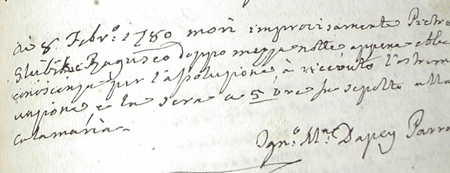 ai 8. Febr.º 1780 morì improvisamente Pietro
Raguseo doppo mezza notte, appena ebbe
conoscenza per l'assoluzione à ricevuto l'estrem
unzione e la sera a 5 ore fu sepolto alla
calamaria.
Ign.º M.ª Dapey Parro